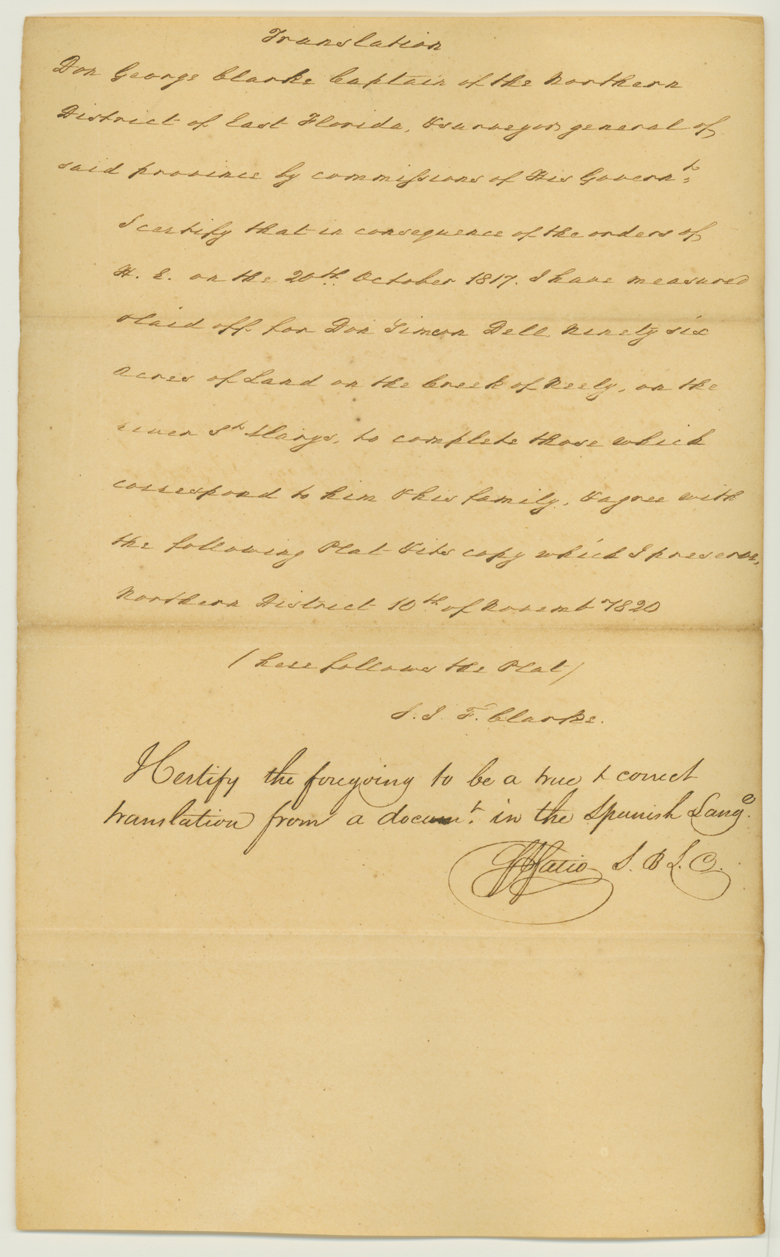 Translation
Don George Clarke Captain of the Northern
District of East Florida, & surveyor general of
said province by commissions of His Governt:
I certify that in consequence of the orders of
H. E. on the 20th October 1817. I have measured
& laid off for Don Simeon Dell Ninety six
Acres of Land on the Creek of Neely, on the
river St Marys, to complete those which
correspond to him & his family, & agree with
the following Plat & its copy which I preserve,
Northern District 10th of Novembr 1820
/ here follows the Plat /
G. I. F. Clarke.
I Certify the foregoing to be a true & correct
translation from a documt. in the Spanish Lange.
F J Fatio S. B L. C.